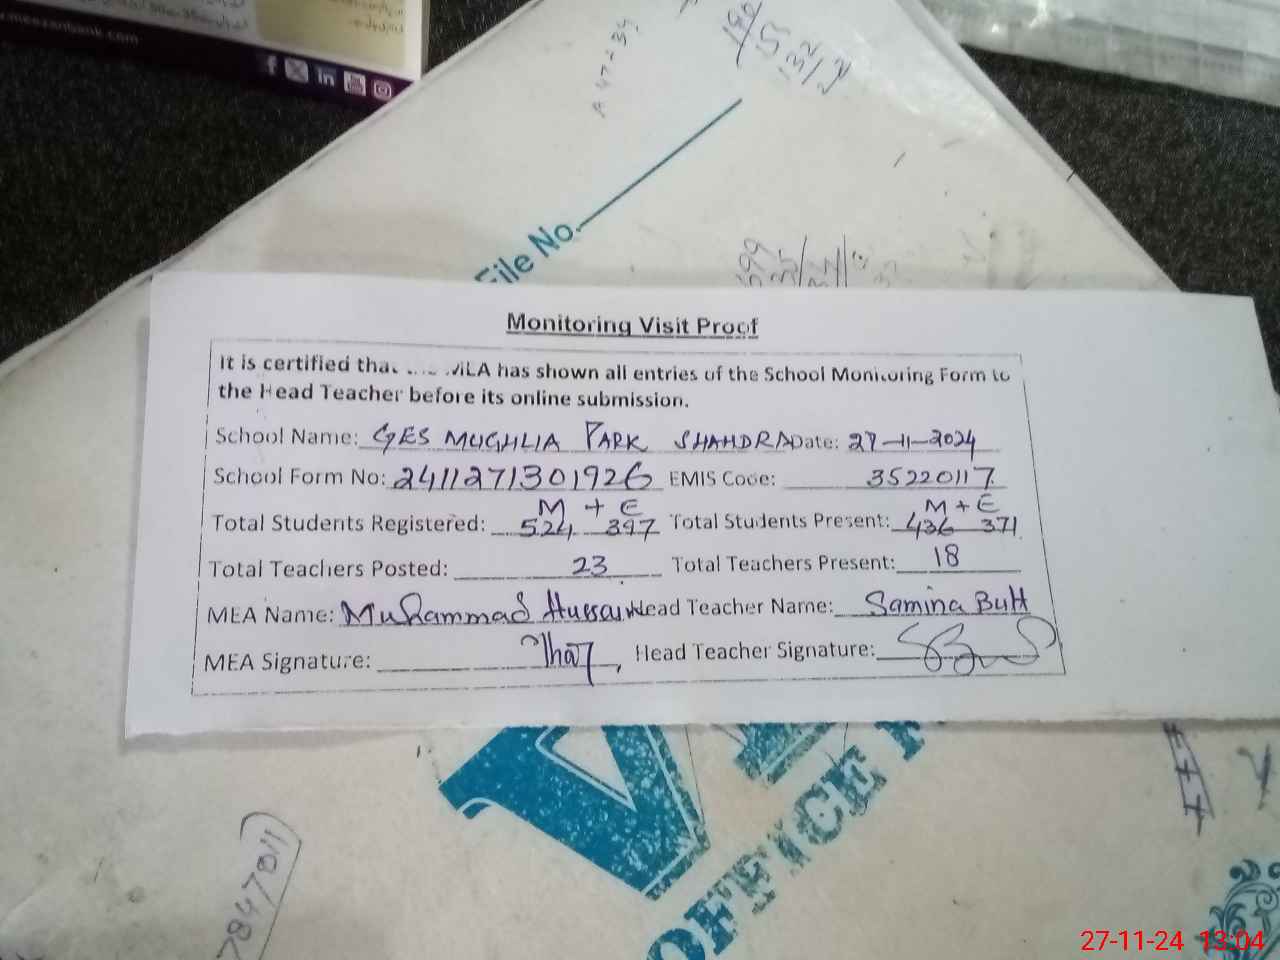 .meezanbank.com
in
A 47-34
File No.
Monitoring Visit Proof
It is certified that MEA has shown all entries of the School Monitoring Form to
the Head Teacher before its online submission.
School Name: GES MUGHLIA PARK SHAHDRA Date: 27-11-2024
School Form No: 2411271301926 EMIS Code: 35220117
M + E M + E
Total Students Registered: 524 397 Total Students Present: 436 371
Total Teachers Posted: 23 Total Teachers Present: 18
MEA Name: Muhammad Hussain Head Teacher Name: Samina Butt
MEA Signature: Head Teacher Signature:
OFFICE
7847011
27-11-24 13:04